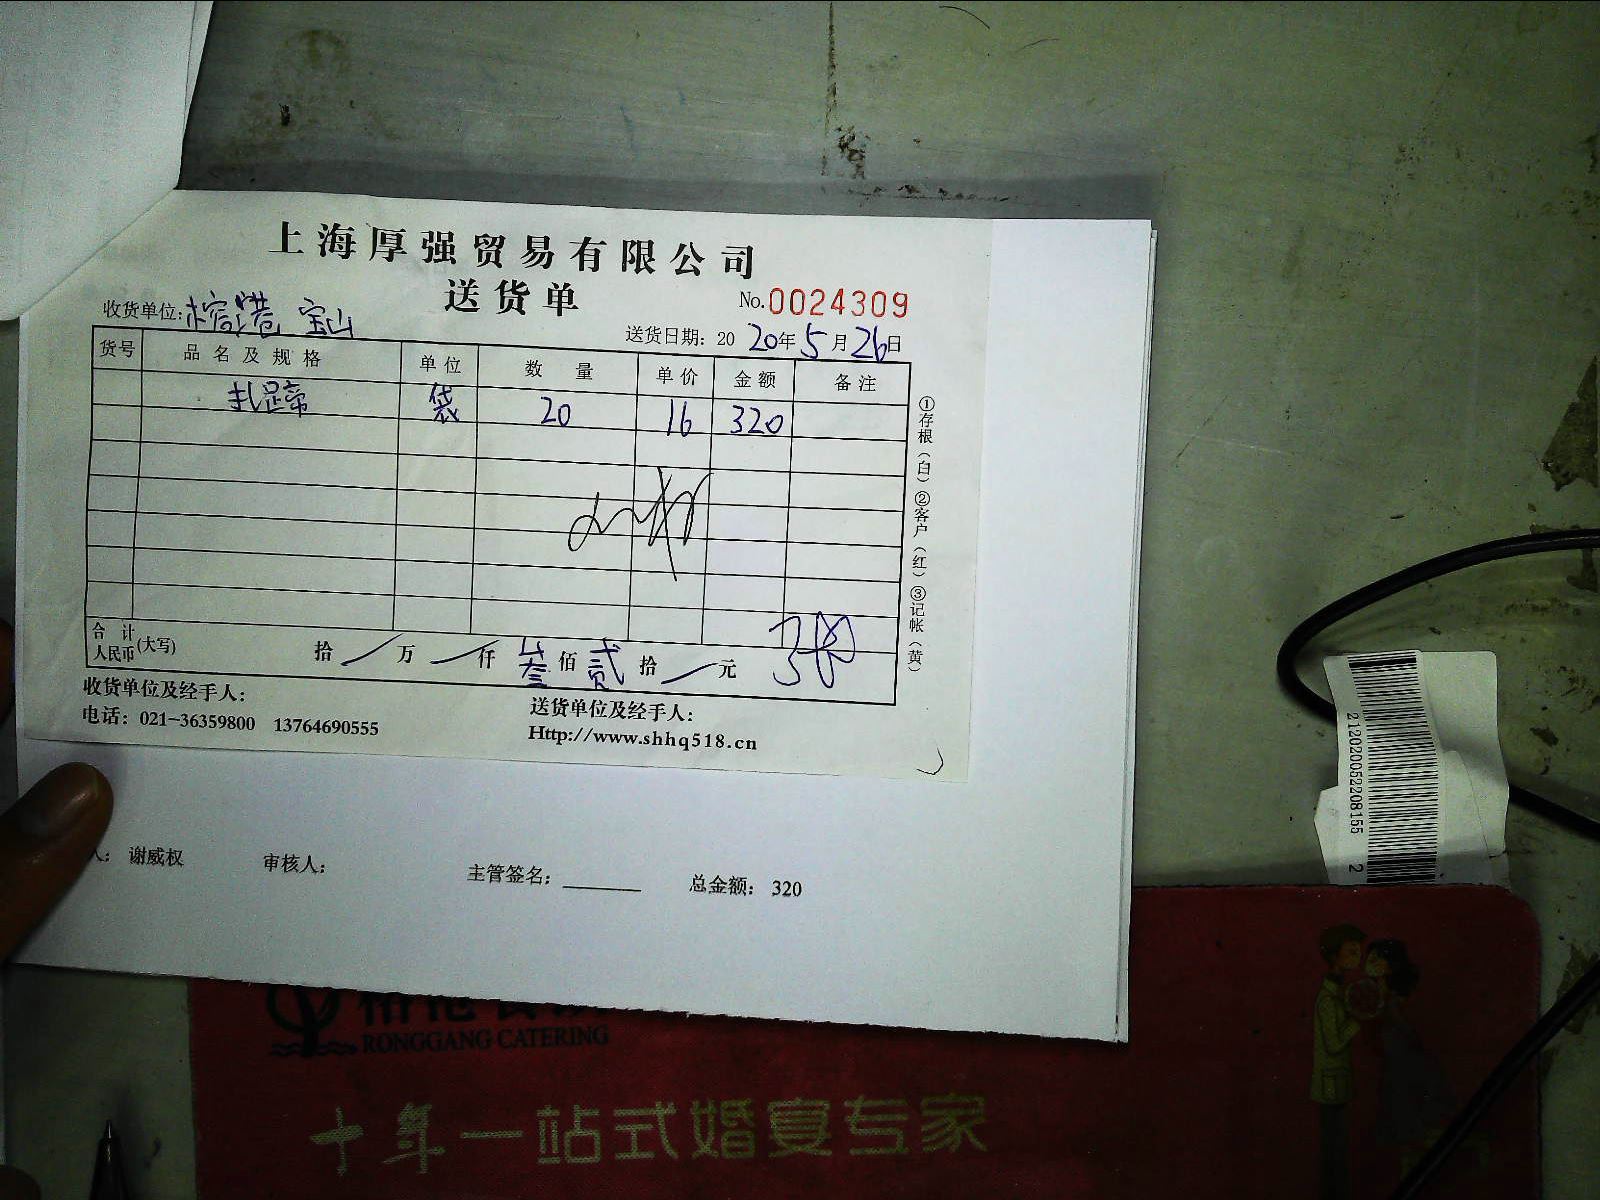 上海厚强贸易有限公司
送货单
No.0024309
收货单位:榕港 宝山
送货日期: 2020年5月26日
货号 品名及规格 单位 数量 单价 金额 备注
扎蹄 袋 20 16 320
①存根(白)②客户(红)③记帐(黄)
合计人民币(大写) 拾 万 仟 叁佰 贰拾 元
收货单位及经手人:
送货单位及经手人:
电话: 021-36359800 13764690555
Http://www.shhq518.cn
人: 谢威权 审核人: 主管签名: 总金额: 320
2120200522081552
RONGGANG CATERING
十年一站式婚宴专家